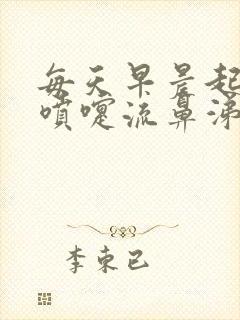 每天早晨起
喷嚏流鼻涕
李东已